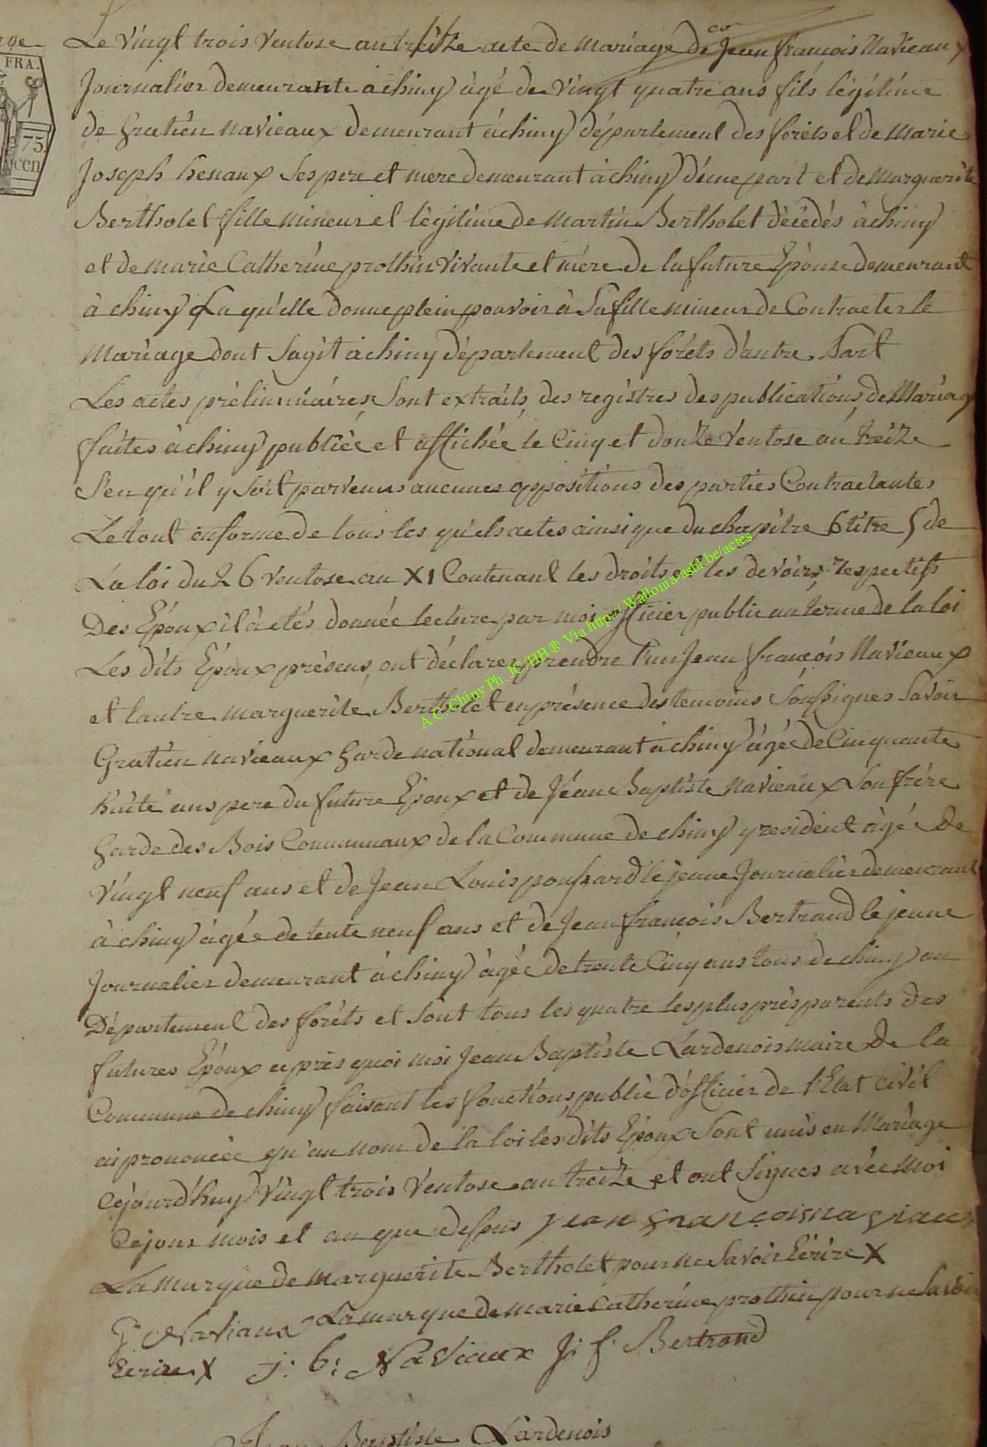 Le vingt trois ventose an treize acte de mariage de Jean françois Navieaux
Journalier demeurante à chiny âgé de vingt quatre ans fils légitime
de Gratien navieaux demeurant à chiny département des forêts et de Marie
Joseph henaux ses pere et mere demeurant à chiny d'une part et de Marguerite
Bertholet fille mineur et légitime de Martin Bertholet décédés à chiny
et de marie Catherine prothin vivante et mère de la future Epouse demeurant
à chiny La qu'elle donne plein pouvoir à Sa fille mineur de Contracter le
Mariage dont Sagit à chiny département des forêts d'autre Part
Les actes préliminaires Sont extraits des registres des publications de Mariage
faites à chiny publiée et affichée le Cinq et douze ventose an treize
Sen qu'il y soit parvenus aucunes oppositions des parties Contractantes
Le tout enforme de tous les quels actes ainsi que du chapitre 6 titre 5 de
La loi du 26 ventose an XI Contenant les droits et les devoirs respectifs
Des Epoux il à etés donnée lecture par moi officier public au terme de la loi
Les dits Epoux présens ont déclares prendre l'un Jean françois Navieaux
et lautre marguerite Bertholet en présence des temoins Soussignes Savoir
Gratien navieaux Garde national demeurant à chiny âgé de Cinquante
huite ans pere du future Epoux et de Jéane Baptiste Navieaux Son frère
Garde des Bois Communaux de la Commune de chiny y resident âgé de
vingt neuf ans et de Jean Louis ponsard le jeune Journalier demeurant
à chiny âgée de tente neuf ans et de Jean françois Bertrand le jeune
Journalier demeurant à chiny âgée de trente Cinq ans tous de chiny au
Département des forêts et sont tous les quatre les plus près parents des
futures Epoux après quoi moi Jean Baptiste Lardenois maire de la
Commune de chiny faisant les fonctions public d'officier de l'Etat civil
ai prononcée qu'au nom de la loi les dits Epoux Sont unis en Mariage
Cejourd'huy vingt trois ventose an treize et ont Signes avec Moi
Cejour mois et an que dessus jean françois naviaux
La marque de marguerite Bertholet pour ne Savoir Ecrire X
G Naviaux La marque de marie Catherine prothin pour ne Savoir
Ecrire X j: b: Naviaux J: f: Bertrand
Jean Baptiste Lardenois
FRA.
75
cen
A.C. Chiny Ph. JC/HB ® Via https:Wallonia-asbl.be/actes